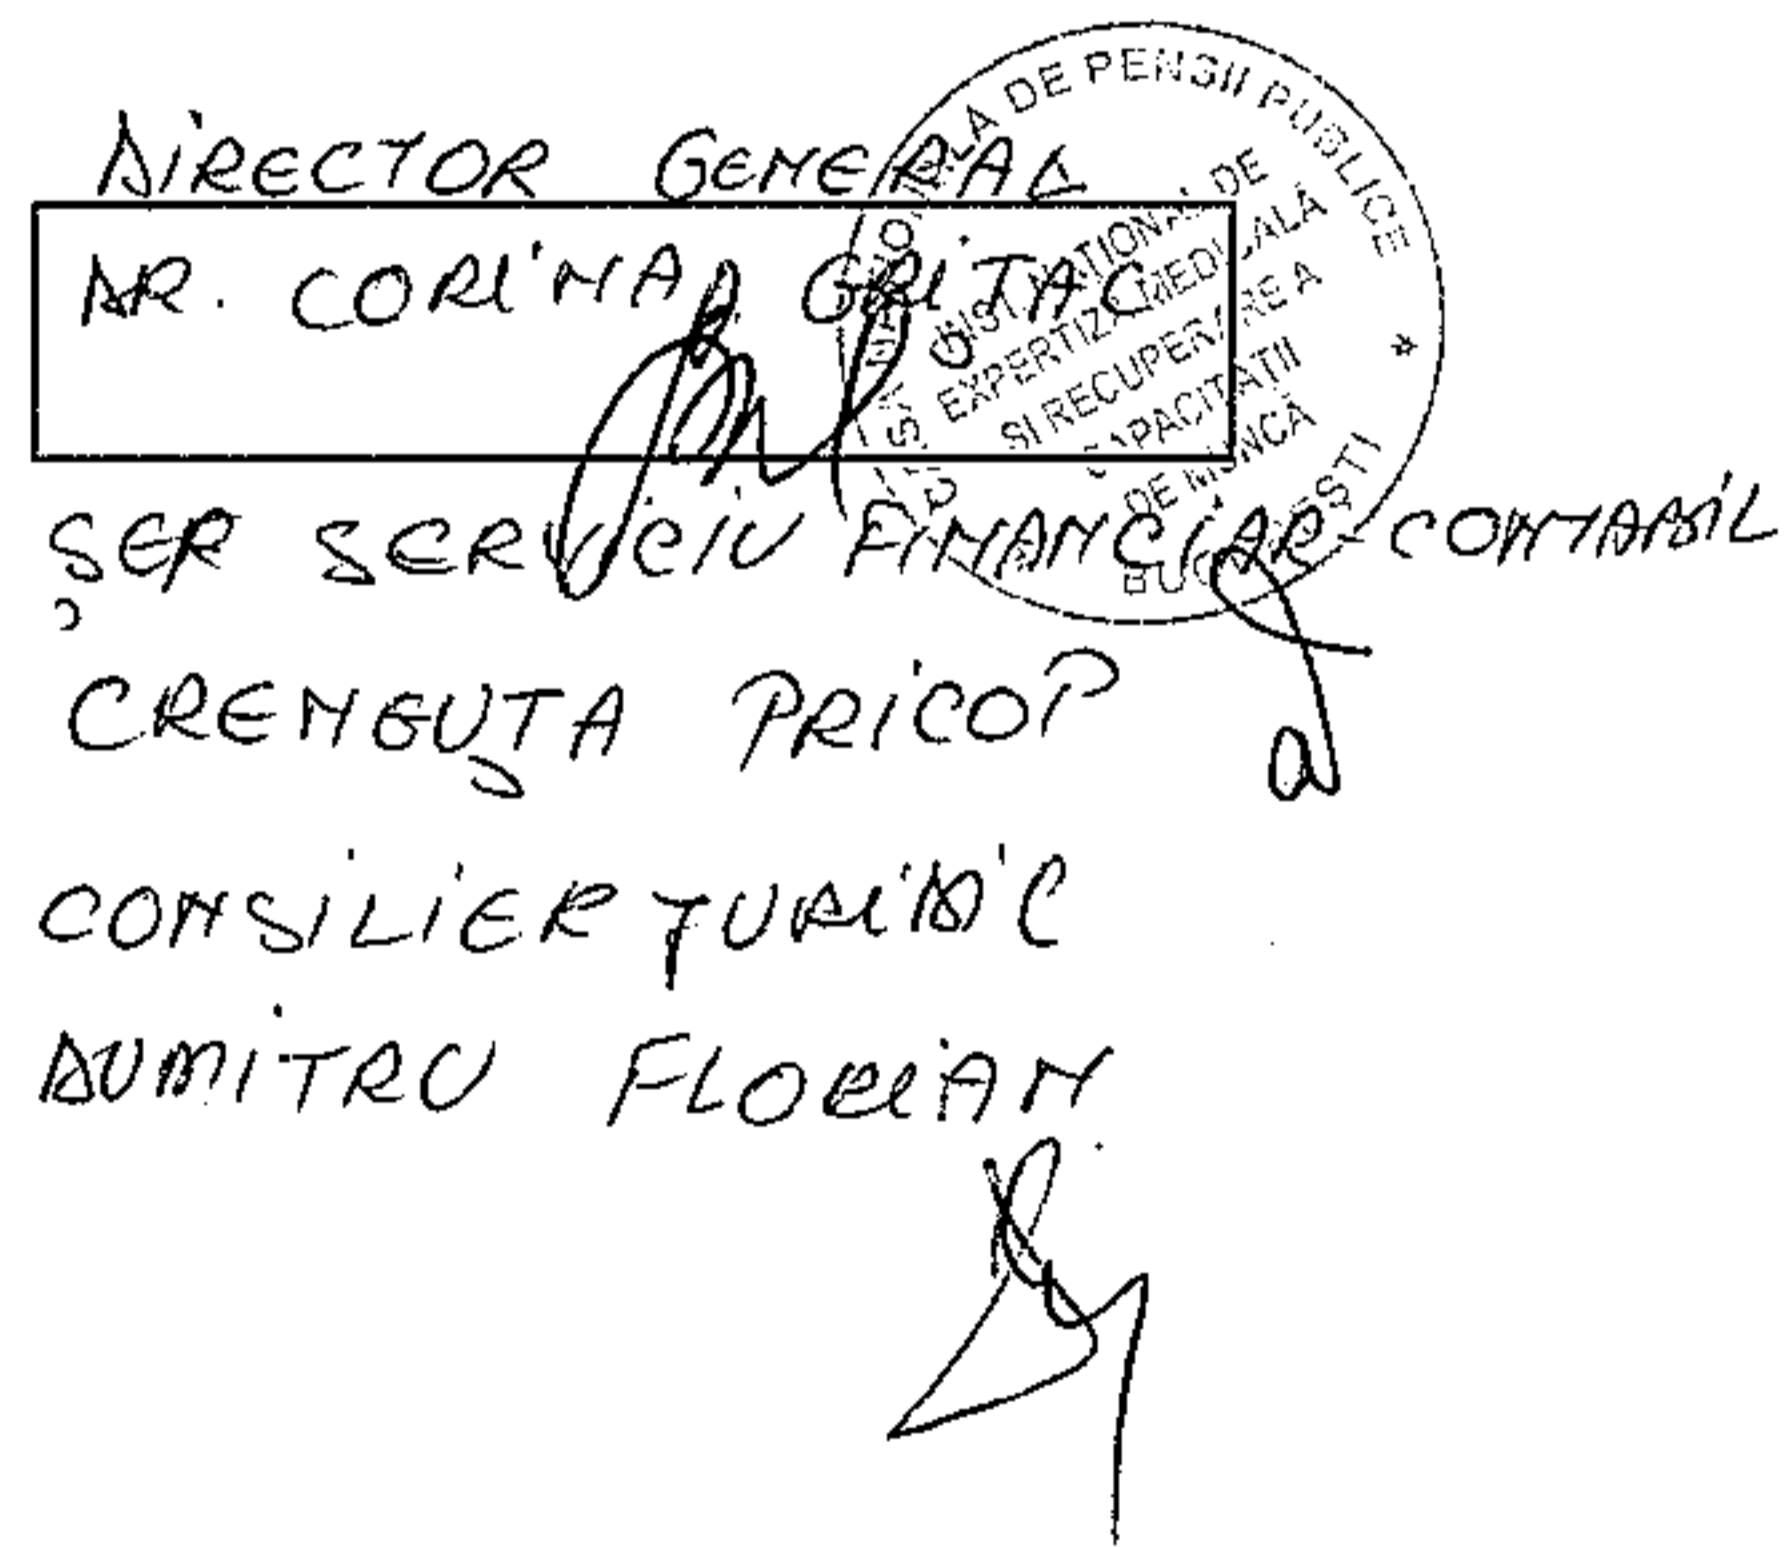 DIRECTOR GENERAL
DR. CORINA GRITAC
ȘEF SERVICIU FINANCIAR-CONTABIL
CRENGUȚA PRICOP
CONSILIER JURIDIC
DUMITRU FLORIAN
DE PENSII PUBLICE
DE
EXPERTIZĂ MEDICALĂ
SI RECUPERARE A
CAPACITATII
DE MUNCĂ